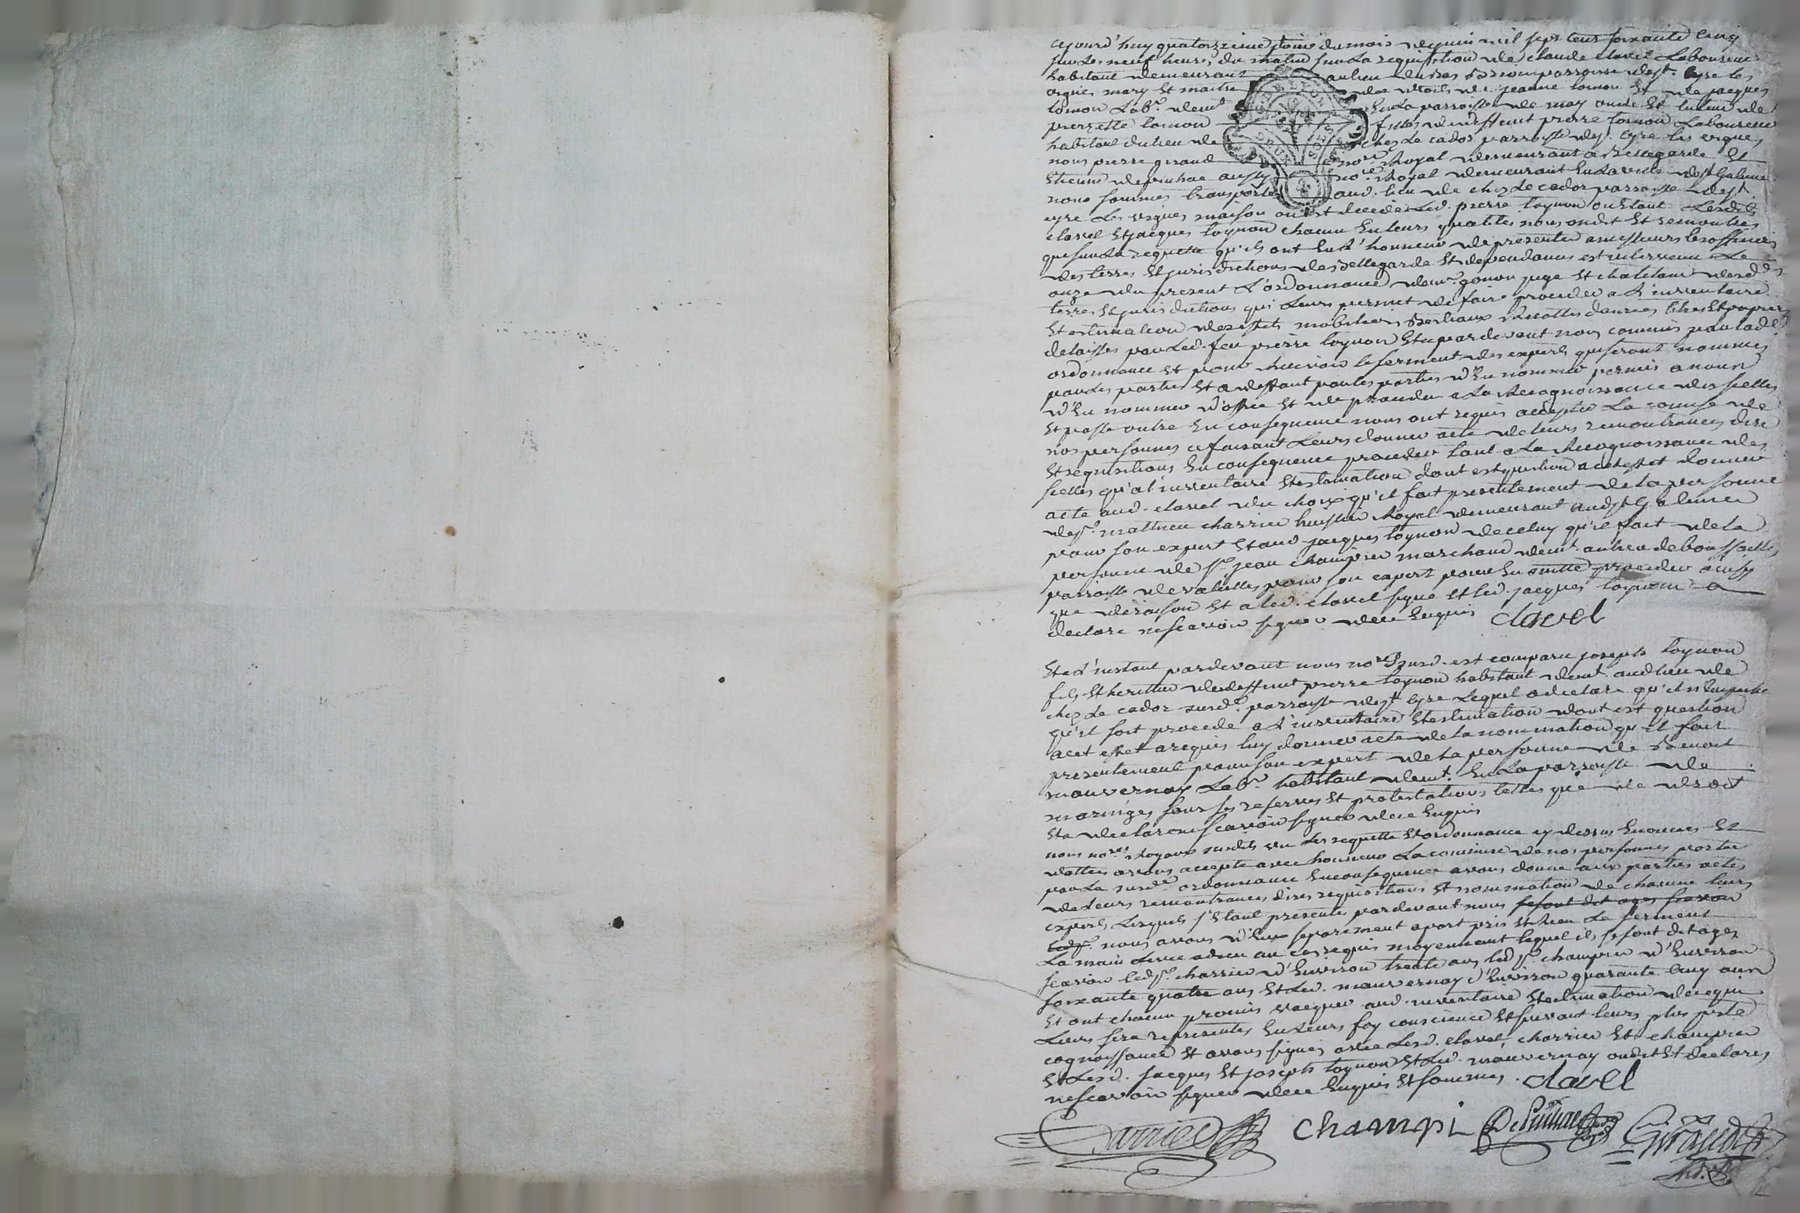 cejourd'huy quatorzieme jour du mois de juin mil sept cent soixante cinq
sur les neuf heures du matin sur la requisition de claude clavel laboureur
habitant demeurant au lieu de parroisse de st. cyre les
vignes mary et maitre des droits de jeanne toinon et de jacques
toinon lab.r dem.t en la parroisse de may oncle et tuteur de
pierrette toinon filles de deffunt pierre toinon laboureur
habitant du lieu de ches le cador parroisse de st. cyre les vignes
nous pierre giraud no.re Royal demeurant a Bellegarde et
Etienne depuihac aussy no.re Royal demeurant en la ville de st Galmier
nous sommes transportés aud. lieu de ches le cador parroisse de st
cyre les vignes maison ou est decedé led. pierre toynon ou etant lesdits
clavel et jacques toynon chacun en leurs qualités nous ont dit et remontré
que sur la requette qu'ils ont eu l'honneur de presenter a messieurs les officiers
des terres et jurisdictions de Bellegarde et dependances est intervenu le
onze du present l'ordonnance de m.r gonon juge et chatelain desd.tes
terres et jurisdictions qui leurs permet de faire proceder a l'inventaire
et estimation des effets mobiliers bestiaux recoltes danrées titres et papiers
delaissés par led. feu pierre toynon et ce pardevant nous commis par lad.e
ordonnance et pour recevoir le serment des experts qui seront nommés
par les parties et a deffaut par les parties d'en nommer permis a nous
d'en nommer d'office et de proceder a la recognoissance des scellés
et passé outre en consequence nous ont requis accepter la commise de
nos personnes ce faisant leurs donner acte de leurs remontrances dire
et requisitions en consequence proceder tant a la recognoissance des
scellés qu'a l'inventaire et estimation dont est question a cet effet donner
acte aud. clavel du choix qu'il fait presentement de la personne
de s.r mathieu charrier huissier Royal demeurant aud st Galmier
pour son expert et aud. jacques toynon de celuy qu'il fait de la
personne de s.r jean champier marchand dem.t au lieu de boissailles
parroisse de valeilles pour son expert pour en suitte proceder ainsy
que de raison et a led. clavel signé et led. jacques toynon a
declaré ne scavoir signer de ce enquis clavel
Et a l'instant pardevant nous no.res susd. est comparu joseph toynon
fils et heritier de deffunt pierre toynon habitant dem.t aud lieu de
ches le cador susd.e parroisse de st cyre lequel a declaré qu'il n'empeche
qu'il soit procedé a l'inventaire et estimation dont est question
a cet effet a requis luy donner acte de la nomination qu'il fait
presentement pour son expert de la personne de Benoit
mauvernay lab.r habitant dem.t en la parroisse de
maringes sous ses reserves et protestations telles que de droit
et a declaré ne scavoir signer de ce enquis
nous no.res royaux susdits vu les requette et ordonnance cy dessus enoncées et
dattées avons accepté avec honneur la commise de nos personnes portée
par la susd.e ordonnance en consequence avons donné aux parties actes
de leurs remontrances dires requisitions et nomination de chacune leurs
experts lesquels s'etant presentés pardevant nous se sont dit ages scavoir
led s.r nous avons d'eux separement apart pris et recu le serment
la main levée a dieu au cas requis moyennant lequel ils se sont dit ages
scavoir led s.r charrier d'environ trente ans led s.r champier d'environ
soixante quatre ans et led. mauvernay d'environ quarante cinq ans
et ont chacun promis vacquer aud. inventaire et estimation de ce qui
leurs sera representés en leurs foy conscience et suivant leurs plus juste
cognoissance et avons signés avec lesd. clavel charrier et champier
et lesd. jacques et joseph toynon et led. mauvernay ont dit et declarés
ne scavoir signer de ce enquis et sommés. clavel
Charrier champi Depuihac Giraud